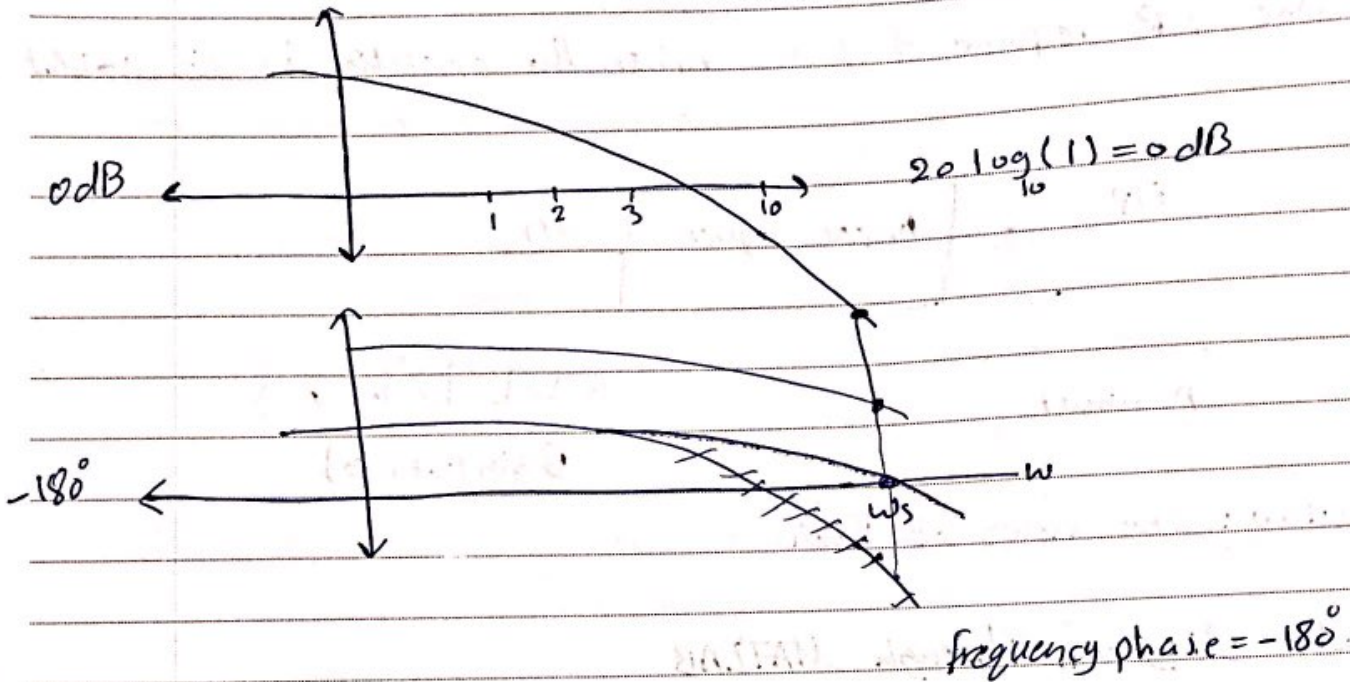 0dB
1 2 3 10
20 log₁₀(1) = 0 dB
-180°
w
ws
frequency phase = -180°